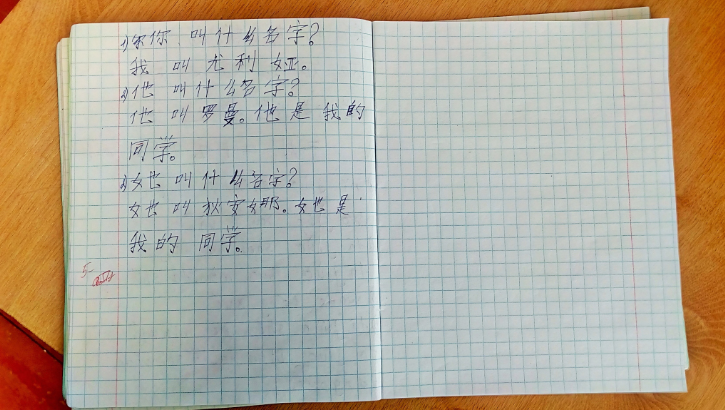 1) 你 叫 什 么 名 字?
我 叫 尤 利 娅。
2) 他 叫 什 么 名 字?
他 叫 罗 曼。他 是 我 的
同 学。
3) 她 叫 什 么 名 字?
她 叫 狄 安 娜。她 是
我 的 同 学。
5-